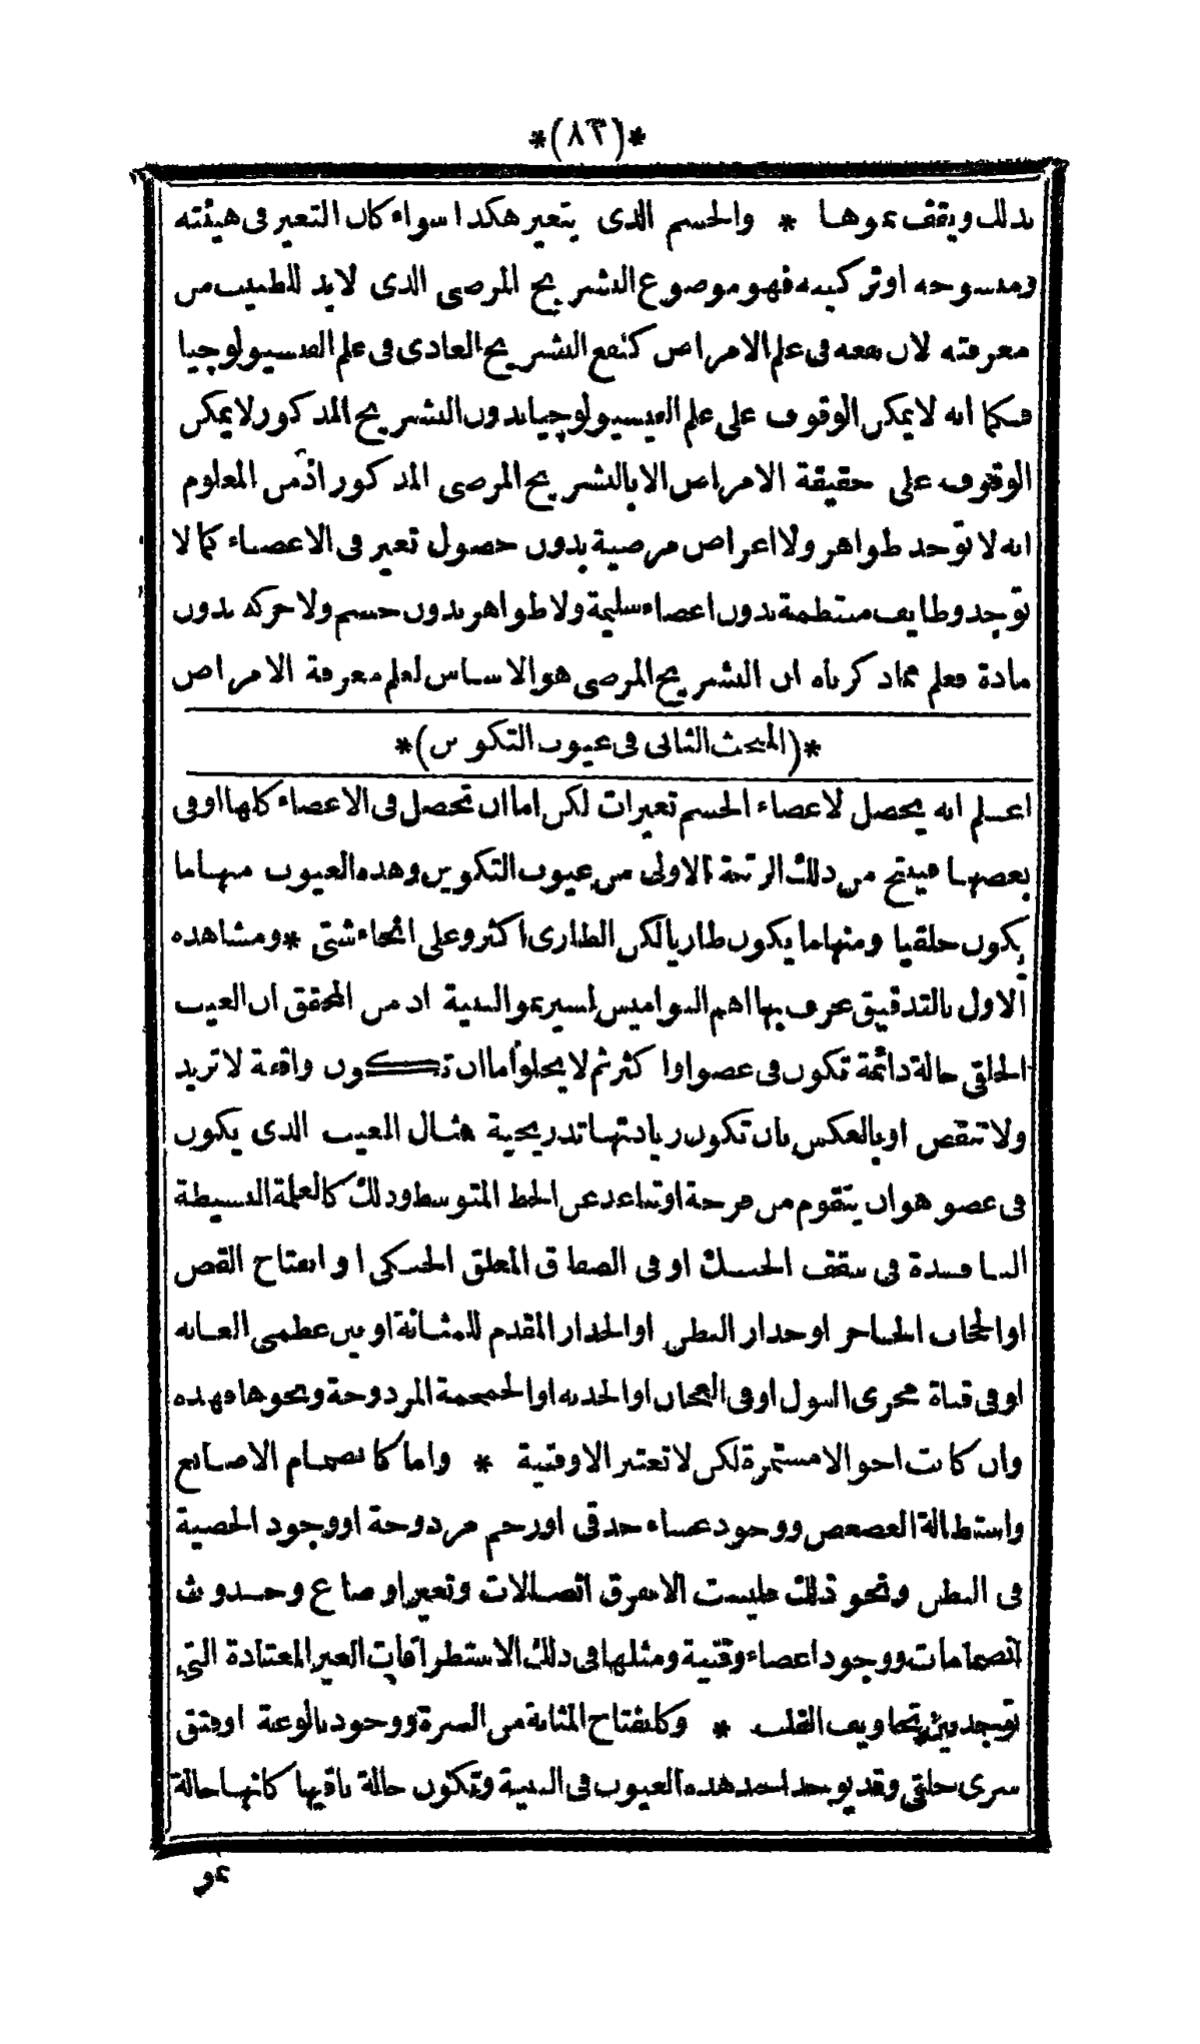 *(٨٣)*
بذلك ويقف نموها * والجسم الذى يتغير هكذا سواء كان التغير فى هيئته
ومنسوجه اوتركيبه فهو موضوع التشريح المرضى الذى لابد للطبيب من
معرفته لان نفعه فى علم الامراض كنفع التشريح العادى فى علم الفسيولوجيا
فكما انه لا يمكن الوقوف على علم الفيسيولوجيا بدون التشريح المذكور لا يمكن
الوقوف على حقيقة الامراض الا بالتشريح المرضى المذكور اذ من المعلوم
انه لا توجد ظواهر ولا اعراض مرضية بدون حصول تغير فى الاعضاء كما لا
توجد وظايف منتظمة بدون اعضاء سليمة ولا ظواهر بدون جسم ولا حركه بدون
مادة فعلم مماذكرناه ان التشريح المرضى هو الاساس لعلم معرفة الامراض
*(المبحث الثانى فى عيوب التكوين)*
اعلم انه يحصل لاعضاء الجسم تغيرات لكن اما ان تحصل فى الاعضاء كلها اوفى
بعضها فينتج من ذلك الرتبة الاولى من عيوب التكوين وهذه العيوب منها ما
يكون خلقيا ومنها ما يكون طاريا لكن الطارى اكثر وعلى انحاء شتى * ومشاهده
الاول بالتدقيق عرف بها اهم النواميس لسير نمو البنية اذ من المحقق ان العيب
الخلقى حالة دائمة تكون فى عضو اوا كثر ثم لا يخلو أما ان تكون واقفة لا تزيد
ولا تنقص اوبالعكس بان تكون زيادتها تدريجية مثال العيب الذى يكون
فى عضو هو ان يتقوم من فرجة اوتباعد عن الخط المتوسط وذلك كالعلمة البسيطة
النافدة فى سقف الحنك اوفى الصفاق المعلق الحنكى او انفتاح القص
او الحجاب الحاجز اوجدار البطن او الجدار المقدم للمثانة اوبين عظمى العانه
اوفى قناة مجرى البول اوفى العجان او الحدبه او الجمجمة المزدوجة ونحوها فهذه
وان كانت احوالا مستمرة لكن لا تعتبر الا وقتية * واما كانضمام الاصابع
واستطالة العصعص ووجود غشاء حدقى اورحم مزدوجة اووجود الخصية
فى البطن ونحو ذلك فليست الا تفرق اتصالات وتغير اوضاع وحدوث
انضمامات ووجود اعضاء وقتية ومثلها فى ذلك الاستطراقات الغير المعتادة التى
توجد بين تجاويف القلب * وكانفتاح المثانة من السرة ووجود بالوعة اوفتق
سرى خلقى وقد يوجد احد هذه العيوب فى البنية وتكون حالة باقيها كانها حالة
نمو